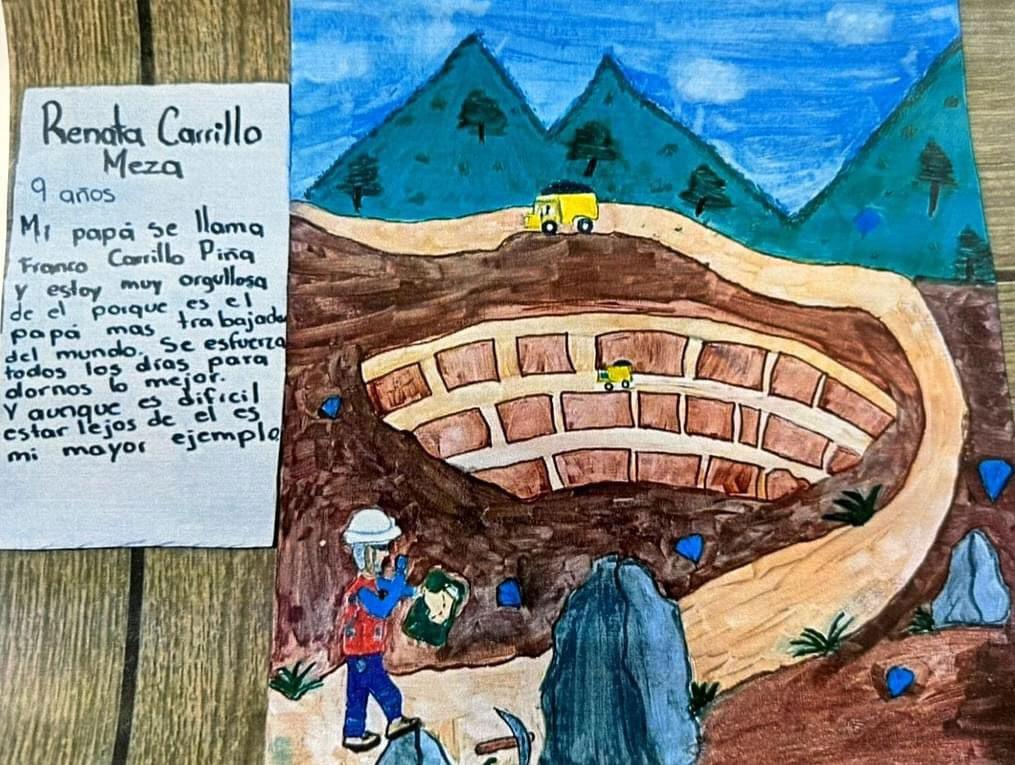 Renata Carrillo
Meza
9 años
Mi papá se llama
Franco Carrillo Piña
y estoy muy orgullosa
de el porque es el
papá mas trabajado
del mundo. Se esfuerza
todos los días para
darnos lo mejor.
Y aunque es dificil
estar lejos de el es
mi mayor ejemplo